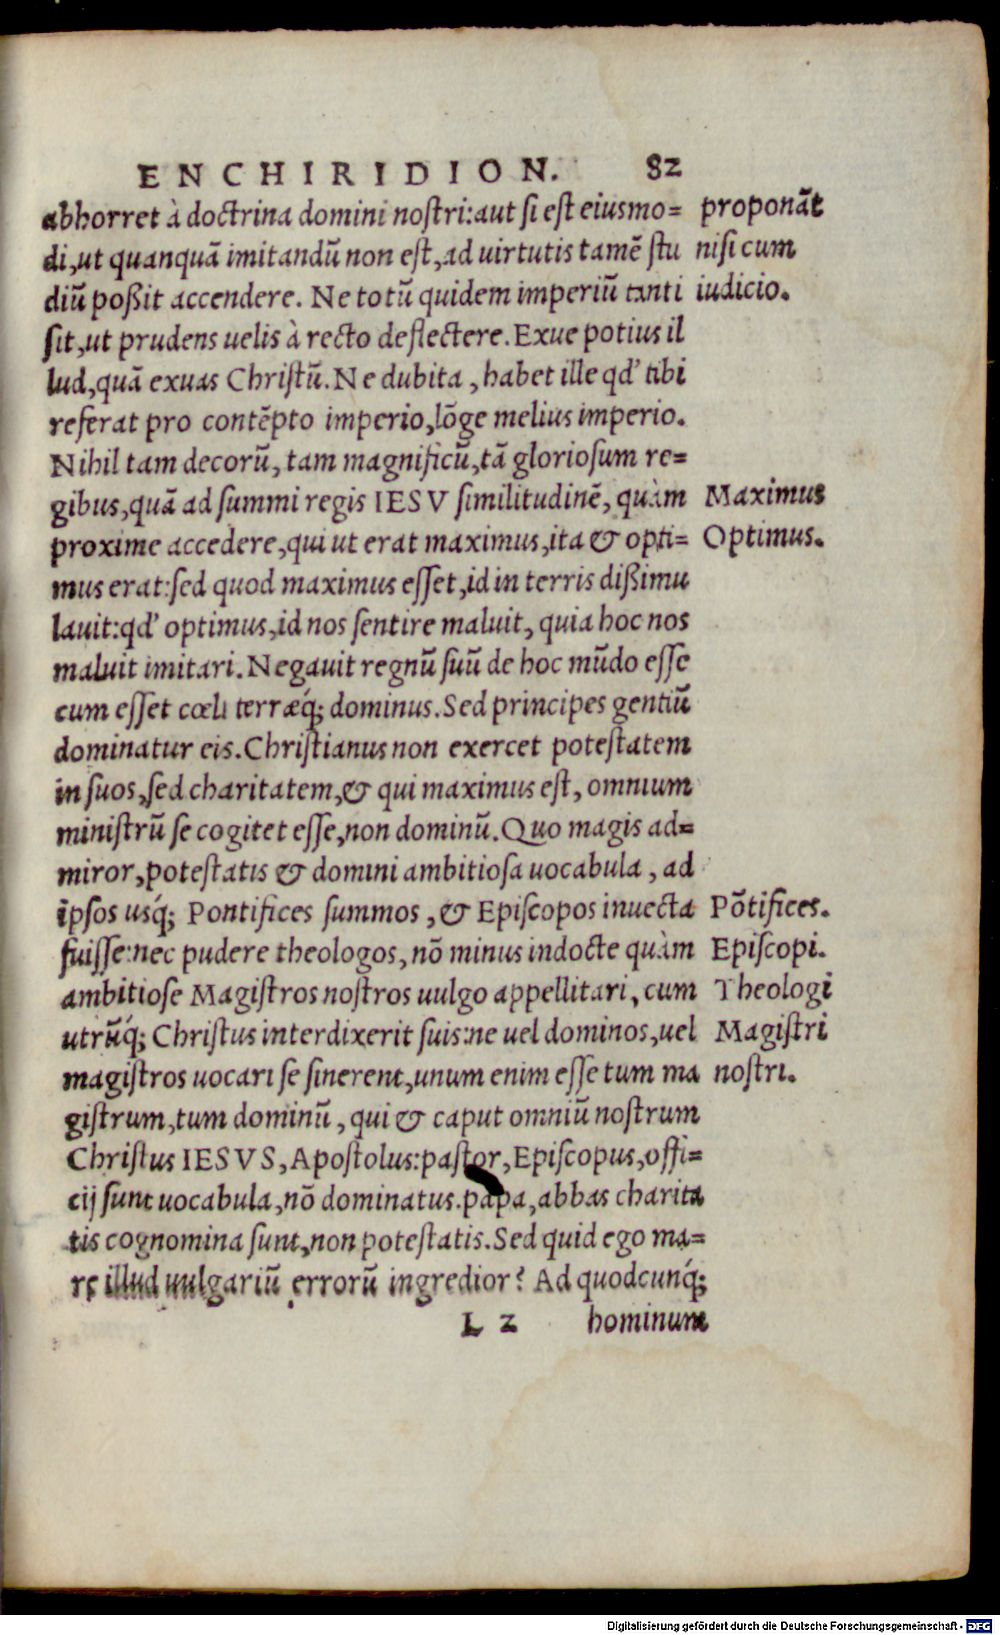 ENCHIRIDION. 82
abhorret à doctrina domini noſtri:aut ſi eſt eiusmo= proponãt
di,ut quanquã imitandũ non eſt,ad uirtutis tamẽ ſtu niſi cum
diũ poßit accendere. Ne totũ quidem imperiũ tanti iudicio.
ſit,ut prudens uelis à recto deflectere.Exue potius il
lud,quã exuas Chriſtũ.Ne dubita,habet ille qď tibi
referat pro contẽpto imperio,lõge melius imperio.
Nihil tam decorũ,tam magnificũ,tã glorioſum re=
gibus,quã ad ſummi regis IESV ſimilitudinẽ, quàm Maximus
proxime accedere,qui ut erat maximus,ita & opti= Optimus.
mus erat:ſed quod maximus eſſet,id in terris dißimu
lauit:qď optimus,id nos ſentire maluit, quia hoc nos
maluit imitari.Negauit regnũ ſuũ de hoc mũdo eſſe
cum eſſet cœli terræq́; dominus.Sed principes gentiũ
dominatur eis.Chriſtianus non exercet poteſtatem
in ſuos,ſed charitatem,& qui maximus eſt, omnium
miniſtrũ ſe cogitet eſſe,non dominũ.Quo magis ad=
miror,poteſtatis & domini ambitioſa uocabula, ad
ipſos uſq́; Pontifices ſummos, & Epiſcopos inuecta Põtifices.
fuiſſe:nec pudere theologos,nõ minus indocte quàm Epiſcopi.
ambitioſe Magiſtros noſtros uulgo appellitari, cum Theologi
utrũq́; Chriſtus interdixerit ſuis:ne uel dominos,uel Magiſtri
magiſtros uocari ſe ſinerent,unum enim eſſe tum ma noſtri.
giſtrum,tum dominũ, qui & caput omniũ noſtrum
Chriſtus IESVS,Apoſtolus:paſtor,Epiſcopus,offi=
cij ſunt uocabula,nõ dominatus.papa,abbas charita
tis cognomina ſunt,non poteſtatis.Sed quid ego ma=
re illud uulgariũ errorũ ingredior? Ad quodcunq́;
L 2 hominum
Digitalisierung gefördert durch die Deutsche Forschungsgemeinschaft - DFG